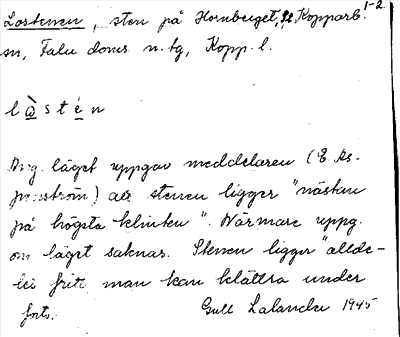 Lostenen, sten på Hornberget, Kopparb. 1-2
sn, Falu doms n. tg, Kopp. l.
l å s t é n
Ang. läget uppgav meddelaren (E As-
penström) att stenen ligger "nästan
på högsta klinten". Närmare uppg.
om läget saknas. Stenen ligger "allde-
les fritt man kan klättra under
forts. Gull Lalander 1945